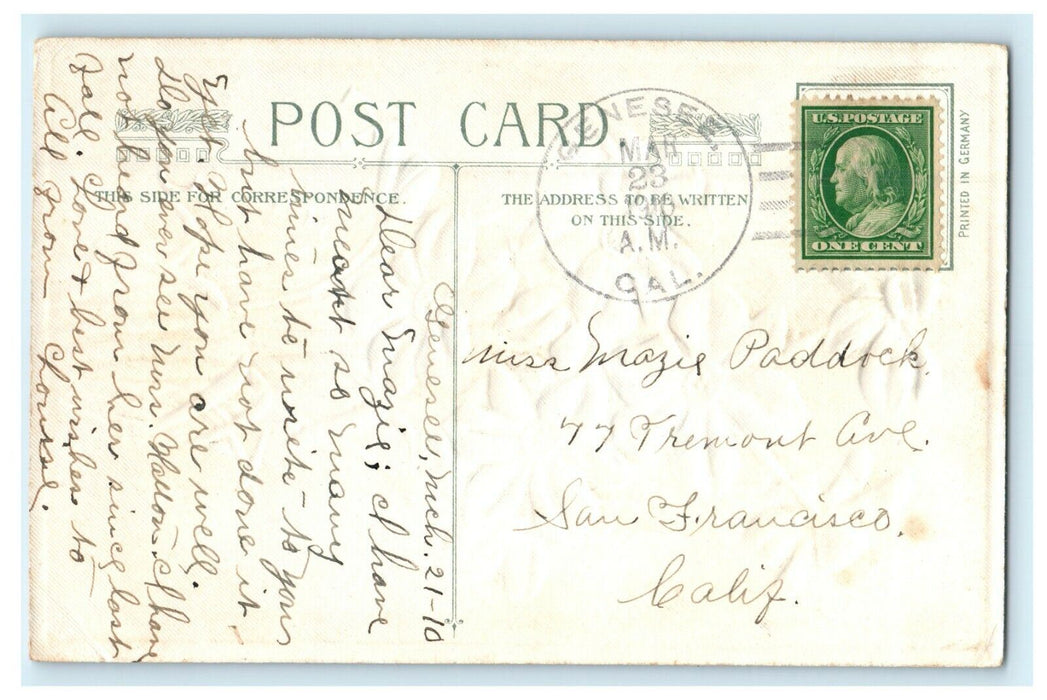 POST CARD
THIS SIDE FOR CORRESPONDENCE.
THE ADDRESS TO BE WRITTEN
ON THIS SIDE.
PRINTED IN GERMANY
U.S. POSTAGE
ONE CENT
GENESEE
MAR
23
A.M.
CAL.
Miss Mazie Paddock.
77 Tremont Ave.
San Francisco.
Calif.
Genesee, Mch. 21-10
Dear Mazie; I have
meant so many
times to write to you
but have not done it
yet. Hope you are well.
Do you ever see Mrs. I have
not heard from her since last
Fall. Love & best wishes to
All from Louise.